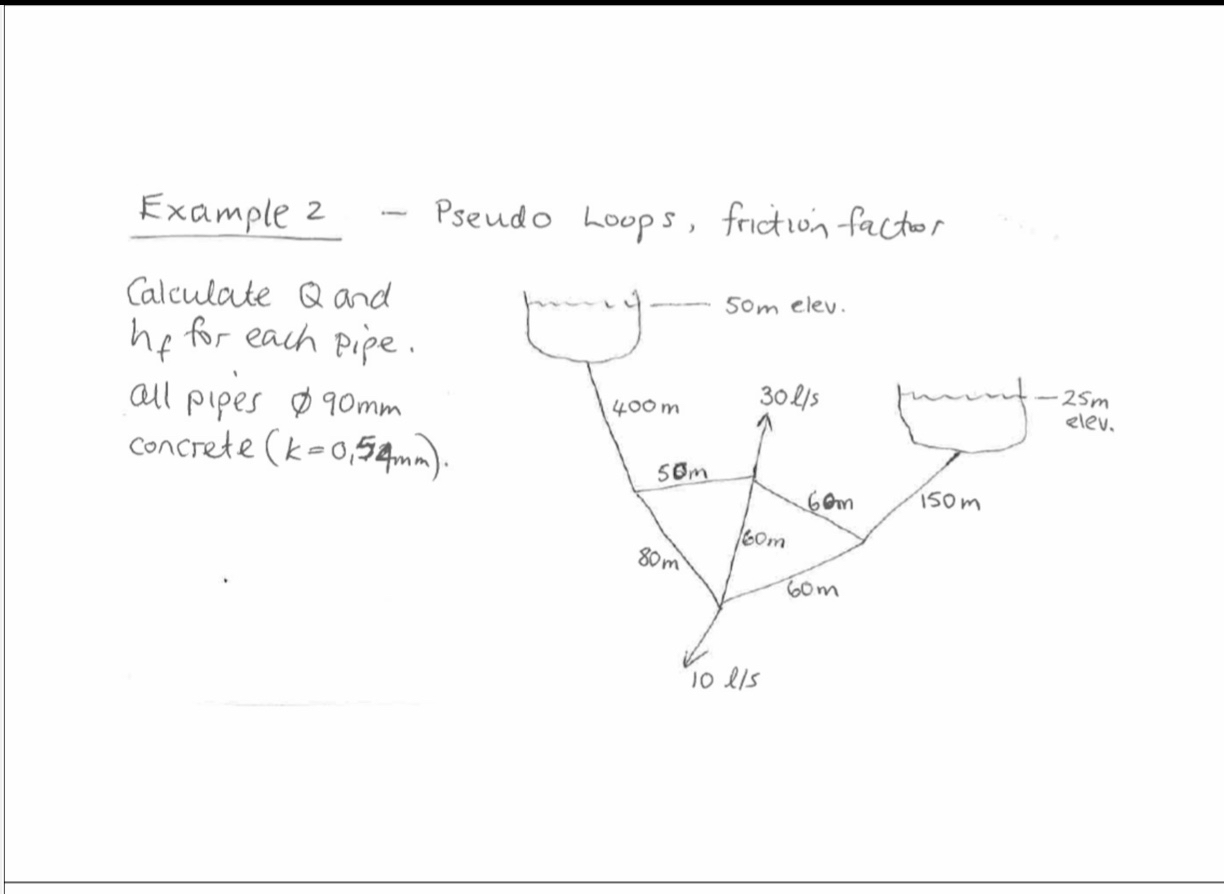 Example 2 - Pseudo Loops, friction factor
Calculate Q and
hf for each pipe.
all pipes ø 90mm
concrete (k=0,54mm).
50m elev.
400m
30 l/s
25m
elev.
50m
60m
150m
80m
60m
60m
10 l/s